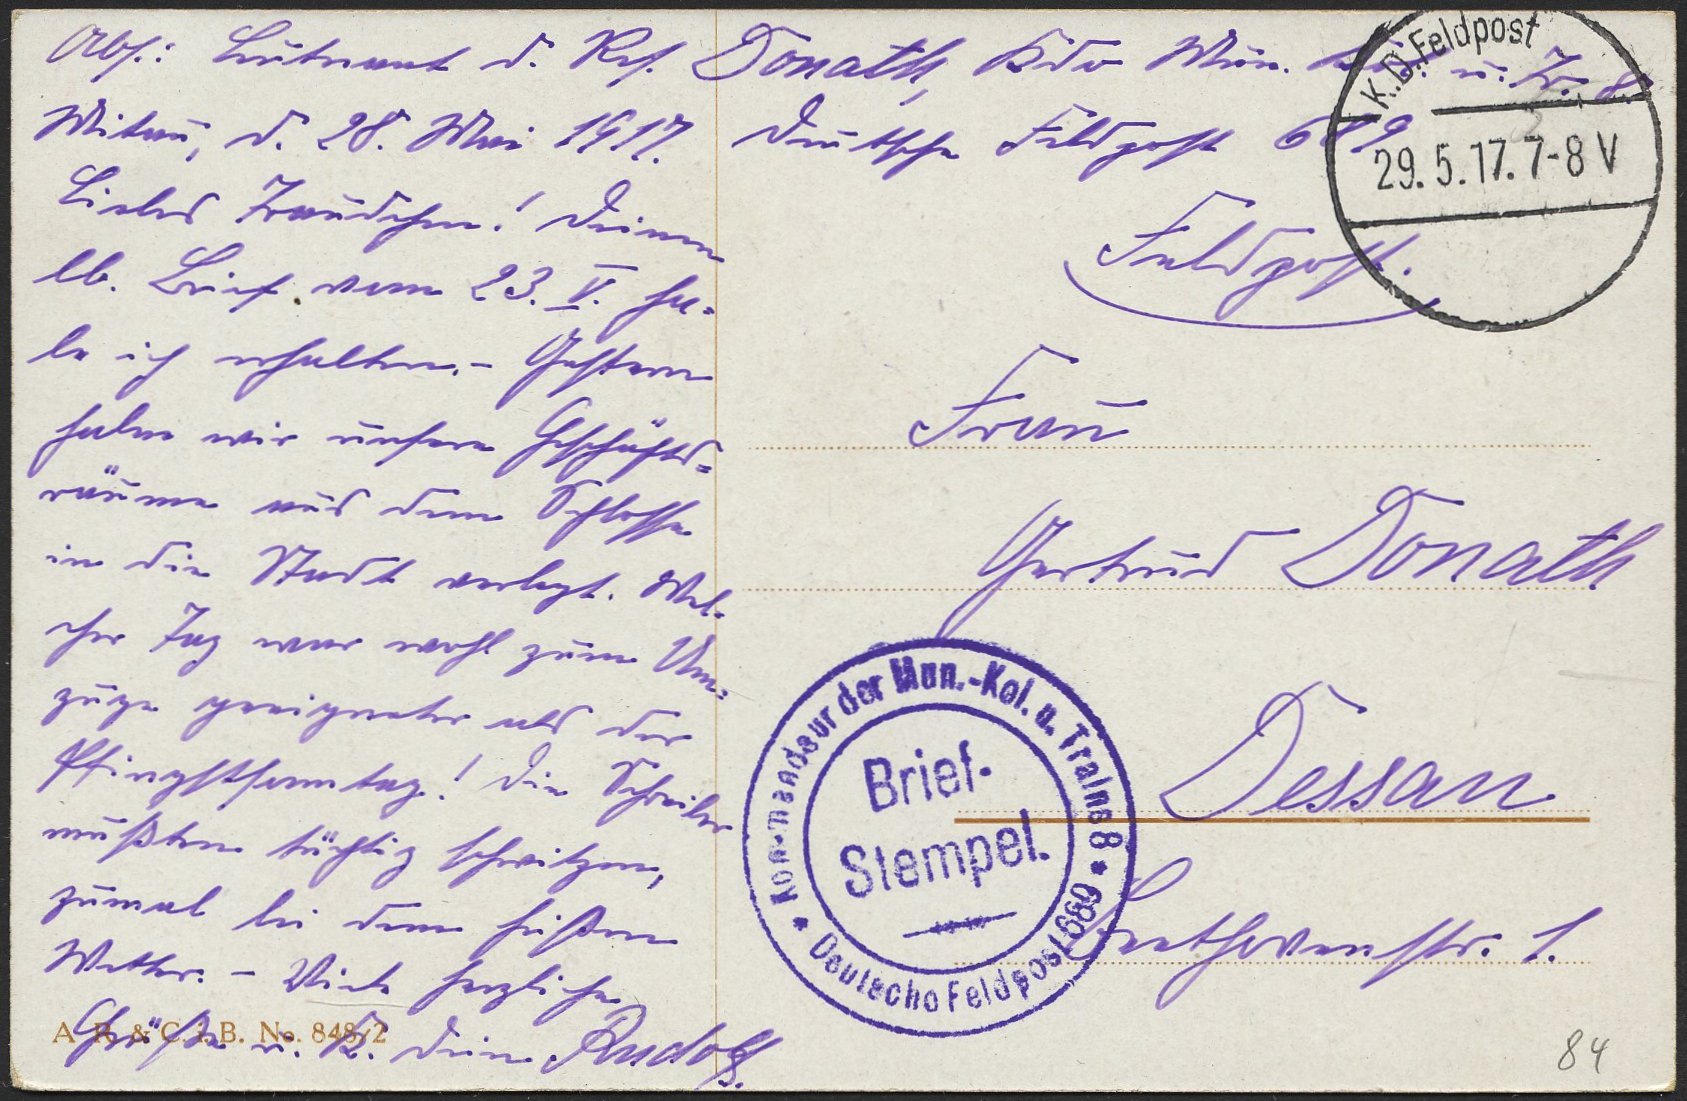 Abs.: Leutnant d. Res. Donath, Kdr Mun. Kol. u. Tr. 8.
Mitau, d. 28. Mai 1917. Deutsche Feldpost 689
Liebes Traudchen! Deinen
lb. Brief vom 23. V. ha-
be ich erhalten. – Gestern
haben wir unsere Geschäfts-
räume aus dem Schlosse
in die Stadt verlegt. Wel-
cher Tag war wohl zum Um-
zuge geeigneter als der
Pfingstsonntag! Die Schreiber
mußten tüchtig schwitzen,
zumal bei dem heißen
Wetter. – Viele herzliche
Grüße u. K. Dein Rudolf.
A. R. & C. i. B. No. 848/2
K.D. Feldpost
29. 5. 17. 7-8 V
Feldpost.
Frau
Gertrud Donath
Dessau
Beethovenstr. 1.
Kommandeur der Mun.-Kol. u. Trains 8
Brief-
Stempel.
* Deutsche Feldpost 689 *
84